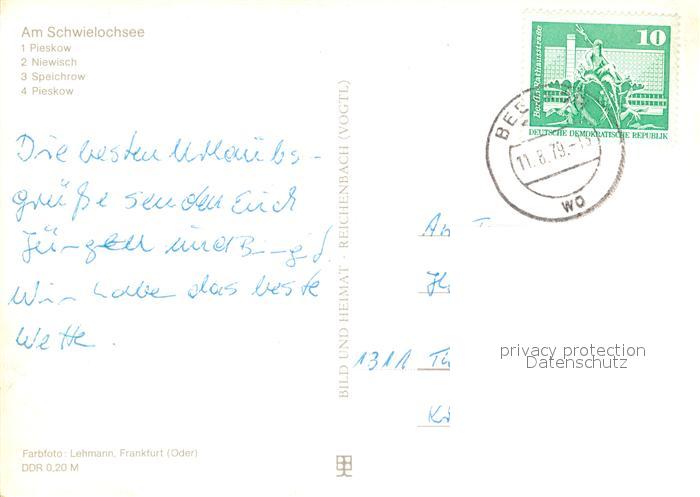 Am Schwielochsee
1 Pieskow
2 Niewisch
3 Speichrow
4 Pieskow
Die besten Urlaubs-
grüße senden Euch
Jürgen und Birgid.
Wir habe das beste
Wette.
Farbfoto: Lehmann, Frankfurt (Oder)
DDR 0,20 M
BILD UND HEIMAT · REICHENBACH (VOGTL)
10
Berlin, Rathausstraße
DEUTSCHE DEMOKRATISCHE REPUBLIK
BEES
11.8.79.-15
wo
An
1311
privacy protection
Datenschutz